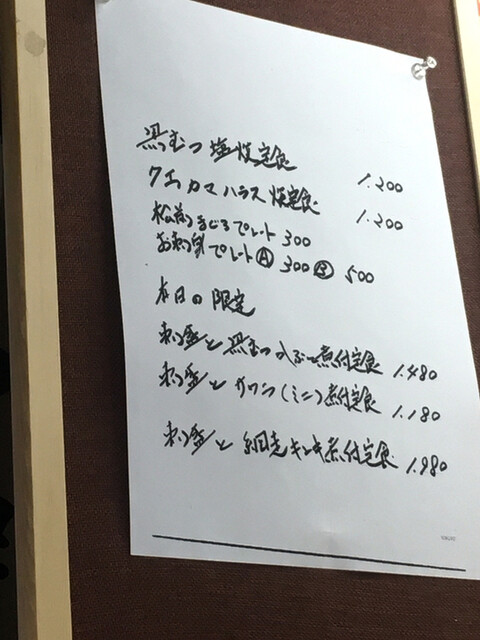 黒むつ 塩焼定食 1.200
クエカマハラス 焼定食 1.200
松前まぐろプレート 300
お刺身プレートⒶ 300 Ⓑ 500
本日の限定
刺盛と黒むつ 煮付定食 1.480
刺盛と カワニ(ミニ)煮付定食 1.180
刺盛と 網走キンキ煮付定食 1.980